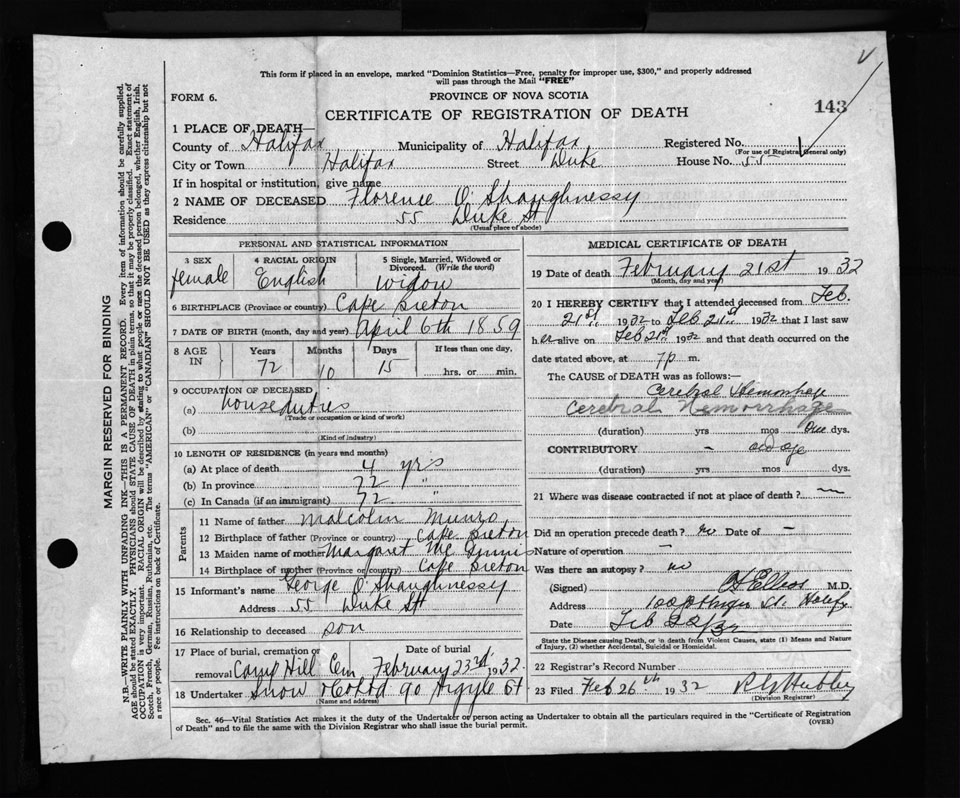 This form if placed in an envelope, marked "Dominion Statistics—Free, penalty for improper use, $300," and properly addressed
will pass through the Mail "FREE"
FORM 6.
PROVINCE OF NOVA SCOTIA
143
CERTIFICATE OF REGISTRATION OF DEATH
1 PLACE OF DEATH—
County of Halifax Municipality of Halifax Registered No.
(For use of Registrar General only)
City or Town Halifax Street Duke House No. 55
If in hospital or institution, give name
2 NAME OF DECEASED Florence O'Shaughnessy
Residence 55 Duke St
(Usual place of abode)
PERSONAL AND STATISTICAL INFORMATION
3 SEX 4 RACIAL ORIGIN 5 Single, Married, Widowed or Divorced. (Write the word)
female English Widow
6 BIRTHPLACE (Province or country) Cape Breton
7 DATE OF BIRTH (month, day and year) April 6th 1859
8 AGE IN Years Months Days If less than one day,
72 10 15 hrs. or min.
9 OCCUPATION OF DECEASED
(a) house duties
(Trade or occupation or kind of work)
(b)
(Kind of industry)
10 LENGTH OF RESIDENCE (in years and months)
(a) At place of death 4 yrs
(b) In province 72 "
(c) In Canada (if an immigrant) 72 "
Parents
11 Name of father Malcolm Munro
12 Birthplace of father (Province or country) Cape Breton
13 Maiden name of mother Margaret Mc Innis
14 Birthplace of mother (Province or country) Cape Breton
15 Informant's name George O'Shaughnessy
Address 55 Duke St
16 Relationship to deceased son
17 Place of burial, cremation or removal Date of burial
Camp Hill Cem February 23rd 1932
18 Undertaker Snow & Co Ltd 90 Argyle St
(Name and address)
MEDICAL CERTIFICATE OF DEATH
19 Date of death February 21st 1932
(Month, day and year)
20 I HEREBY CERTIFY that I attended deceased from Feb.
21st 1932 to Feb 21st 1932 that I last saw
her alive on Feb 21st 1932 and that death occurred on the
date stated above, at 7 p m.
The CAUSE of DEATH was as follows:—
Cerebral Hemorrhage
Cerebral Hemorrhage
(duration) yrs mos One dys.
CONTRIBUTORY – old age
(duration) yrs mos dys.
21 Where was disease contracted if not at place of death? —
Did an operation precede death? no Date of –
Nature of operation –
Was there an autopsy? no
(Signed) M.D.
Address St. Halifax
Date Feb 22/32
State the Disease causing Death, or in death from Violent Causes, state (1) Means and Nature
of Injury, (2) whether Accidental, Suicidal or Homicidal.
22 Registrar's Record Number
23 Filed Feb 26th 1932
(Division Registrar)
Sec. 46—Vital Statistics Act makes it the duty of the Undertaker or person acting as Undertaker to obtain all the particulars required in the "Certificate of Registration
of Death" and to file the same with the Division Registrar who shall issue the burial permit.
(OVER)
MARGIN RESERVED FOR BINDING
N.B.—WRITE PLAINLY WITH UNFADING INK—THIS IS A PERMANENT RECORD. Every item of information should be carefully supplied.
AGE should be stated EXACTLY. PHYSICIANS should STATE CAUSE OF DEATH in plain terms, so that it may be properly classified. Exact statement of
OCCUPATION is very important. RACIAL ORIGIN will be described by stating to what people or race the deceased person belonged, whether English, Irish,
Scotch, French, German, Russian, Ruthenian, etc. The terms "AMERICAN" or "CANADIAN" SHOULD NOT BE USED as they express citizenship but not
a race or people. See instructions on back of Certificate.